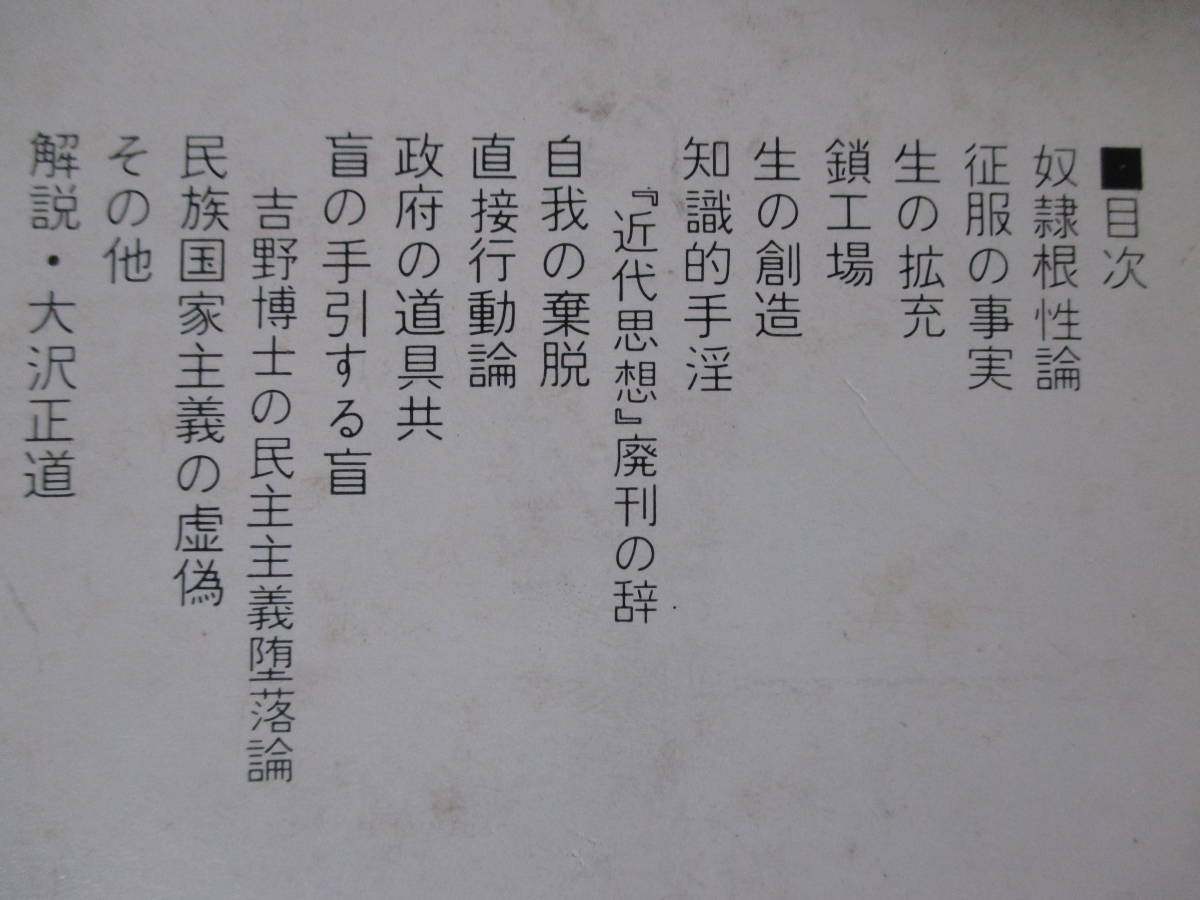 ■目次
奴隷根性論
征服の事実
生の拡充
鎖工場
生の創造
知識的手淫
『近代思想』廃刊の辞
自我の棄脱
直接行動論
政府の道具共
盲の手引する盲
吉野博士の民主主義堕落論
民族国家主義の虚偽
その他
解説・大沢正道